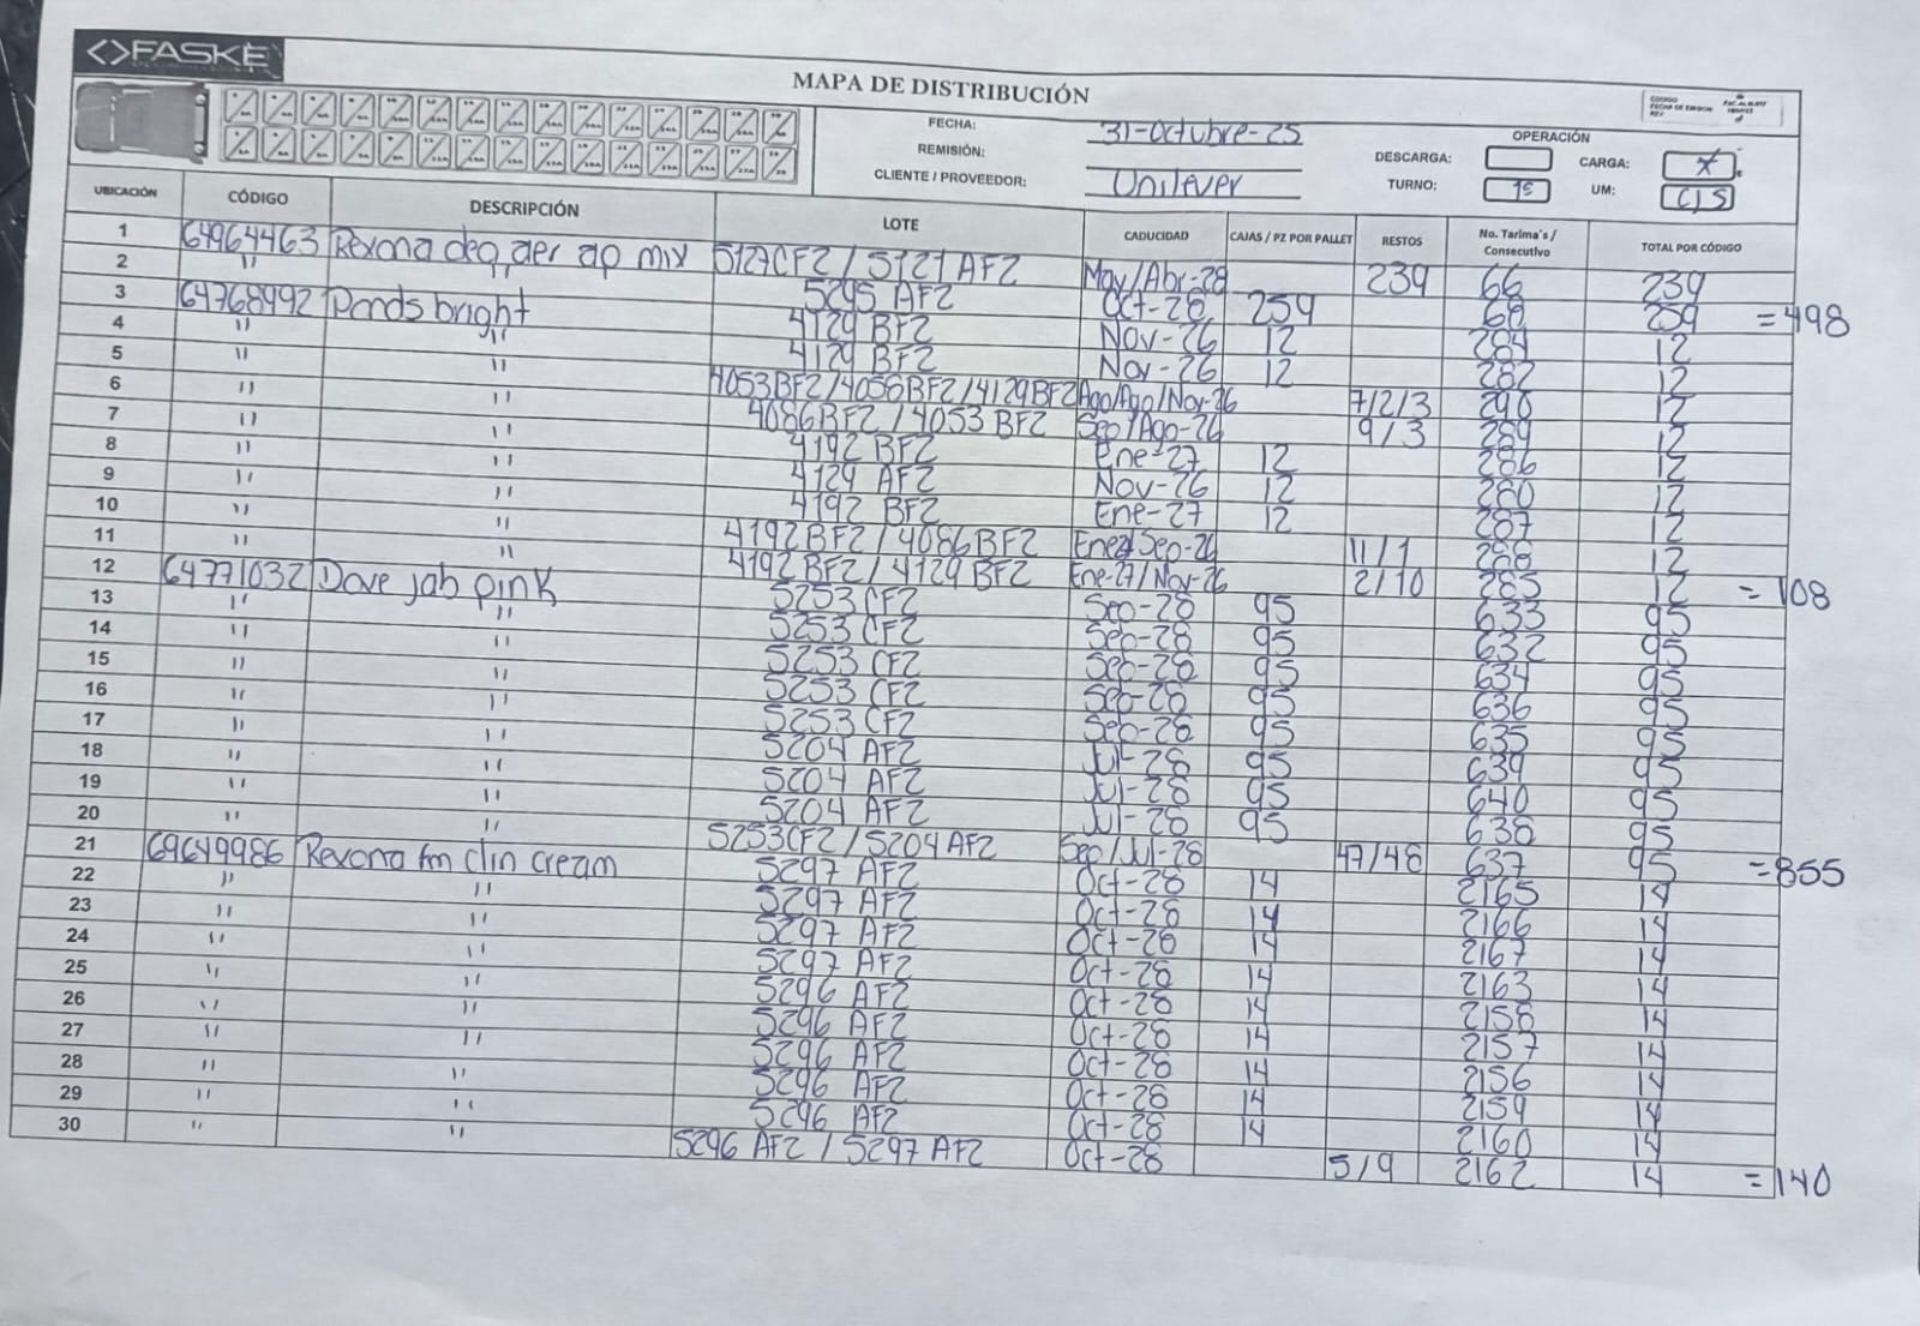 <>FASKE
MAPA DE DISTRIBUCIÓN
FECHA: 31-Octubre-25
REMISIÓN:
CLIENTE / PROVEEDOR: Unilever
OPERACIÓN
DESCARGA: CARGA: X
TURNO: 1º UM: CJS
UBICACIÓN CÓDIGO DESCRIPCIÓN LOTE CADUCIDAD CAJAS / PZ POR PALLET RESTOS No. Tarima's / Consecutivo TOTAL POR CÓDIGO
1 64964463 Rexona deo aer ap mix 5127CF2 / 5121 AF2 May/Abr-28 239 66 239
2 " " 5295 AF2 Oct-28 259 68 259 =498
3 64768992 Ponds bright 4129 BF2 Nov-26 12 284 12
4 " " 4129 BF2 Nov-26 12 282 12
5 " " 4053BF2/4056BF2/4129BF2 Ago/Ago/Nov-26 7/2/3 290 12
6 " " 4086BF2 / 4053 BF2 Sep/Ago-26 9/3 289 12
7 " " 4192 BF2 Ene-27 12 286 12
8 " " 4129 AF2 Nov-26 12 280 12
9 " " 4192 BF2 Ene-27 12 287 12
10 " " 4192BF2 / 4086BF2 Ene27/Sep-26 11/1 288 12
11 " " 4192 BF2 / 4129 BF2 Ene-27/Nov-26 2/10 285 12 = 108
12 64771032 Dove jab pink 5253 CF2 Sep-28 95 633 95
13 " " 5253 CF2 Sep-28 95 632 95
14 " " 5253 CF2 Sep-28 95 634 95
15 " " 5253 CF2 Sep-28 95 636 95
16 " " 5253 CF2 Sep-28 95 635 95
17 " " 5204 AF2 Jul-28 95 639 95
18 " " 5204 AF2 Jul-28 95 640 95
19 " " 5204 AF2 Jul-28 95 638 95
20 " " 5253CF2 / 5204 AF2 Sep/Jul-28 47/48 637 95 =855
21 69649986 Rexona fm clin cream 5297 AF2 Oct-28 14 2165 14
22 " " 5297 AF2 Oct-28 14 2166 14
23 " " 5297 AF2 Oct-28 14 2167 14
24 " " 5297 AF2 Oct-28 14 2163 14
25 " " 5296 AF2 Oct-28 14 2158 14
26 " " 5296 AF2 Oct-28 14 2157 14
27 " " 5296 AF2 Oct-28 14 2156 14
28 " " 5296 AF2 Oct-28 14 2159 14
29 " " 5296 AF2 Oct-28 14 2160 14
30 " " 5296 AF2 / 5297 AF2 Oct-28 5/9 2162 14 =140